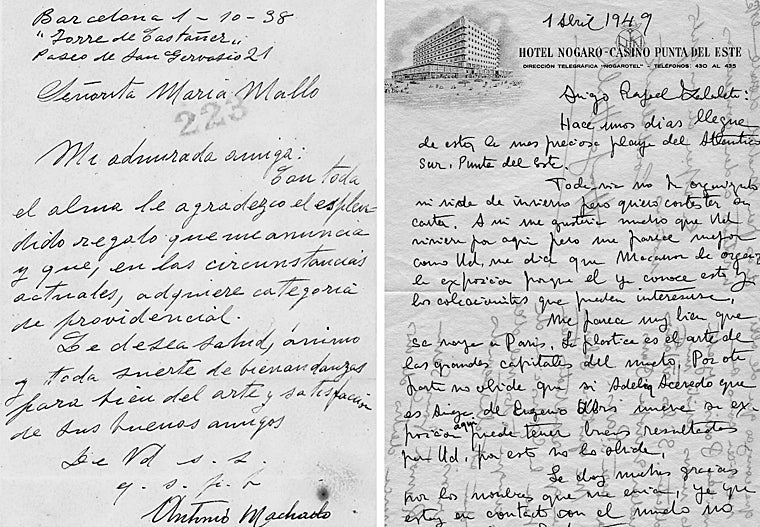 Barcelona 1-10-38
"Torre de Castañer"
Paseo de San Gervasio 21
Señorita Maria Mallo
223
Mi admirada amiga:
Con toda
el alma le agradezco el esplen-
dido regalo que me anuncia
y que, en las circunstancias
actuales, adquiere categoria
de providencial.
Le desea salud, ánimo
y toda suerte de bienandanzas
para bien del arte y satisfacción
de sus buenos amigos
De Vd s. s.
q. s. p. b
Antonio Machado
1 Abril 1949
HOTEL NOGARO-CASINO PUNTA DEL ESTE
DIRECCIÓN TELEGRÁFICA "NOGAROTEL" - TELÉFONOS: 430 AL 435
Amigo Rafael
Hace unos dias llegue
de esta la mas preciosa playa del Atlantico
Sur. Punta del Este.
Todavia no he organizado
mi de invierno pero quiero contestar su
carta. A mi me gustaria mucho que Ud
viniera por aqui pero me parece mejor
como Ud. me dice que organize
la exposicion porque el ya conoce esto y
los coleccionistas que pueden interesarse.
Me parece muy bien que
se vaya a Paris. La plastica es el arte de
las grandes capitales del mundo. Por otra
parte no olvide que si Adelia Acevedo que
es amiga de Eugenio d'Ors mueve su ex-
posicion aqui puede tener buenos resultados
para Ud. por esto no lo olvide.
Le doy muchas gracias
por los nombres que me envia, ya que
estoy en contacto con el mundo no